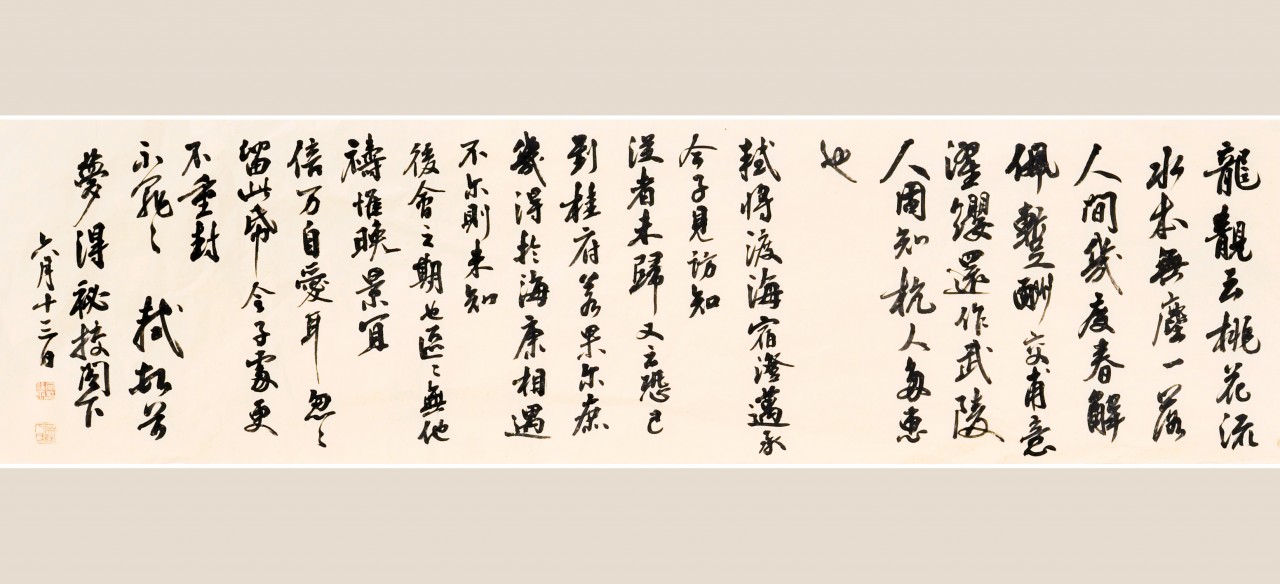 龍靚云桃花流
水本無塵一落
人間幾度春解
佩暫酬交甫意
濯纓還作武陵
人固知杭人多惠
也
軾將渡海宿澄邁承
令子見訪知
從者未歸又云恐已
到桂府若果尔庶
幾得於海康相遇
不尔則未知
後會之期也區〻無他
禱惟晚景宜
倍万自愛耳忽〻
留此帋令子處更
不重封
不罪〻 軾頓首
夢得祕授閣下
六月十三日